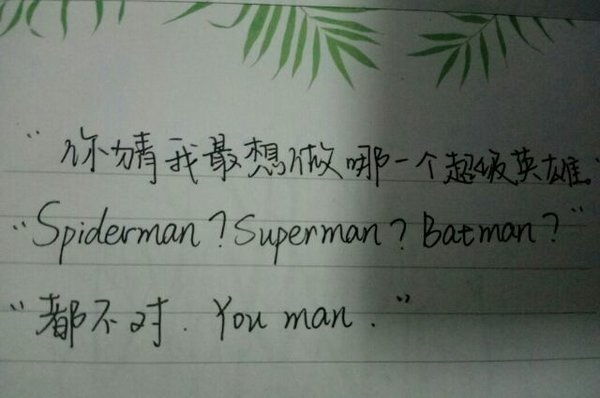 “你猜我最想做哪一个超级英雄。”
“Spiderman？Superman？Batman？”
“都不对. You man.”